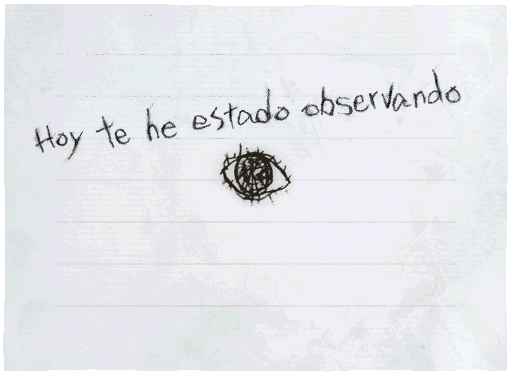 Hoy te he estado observando